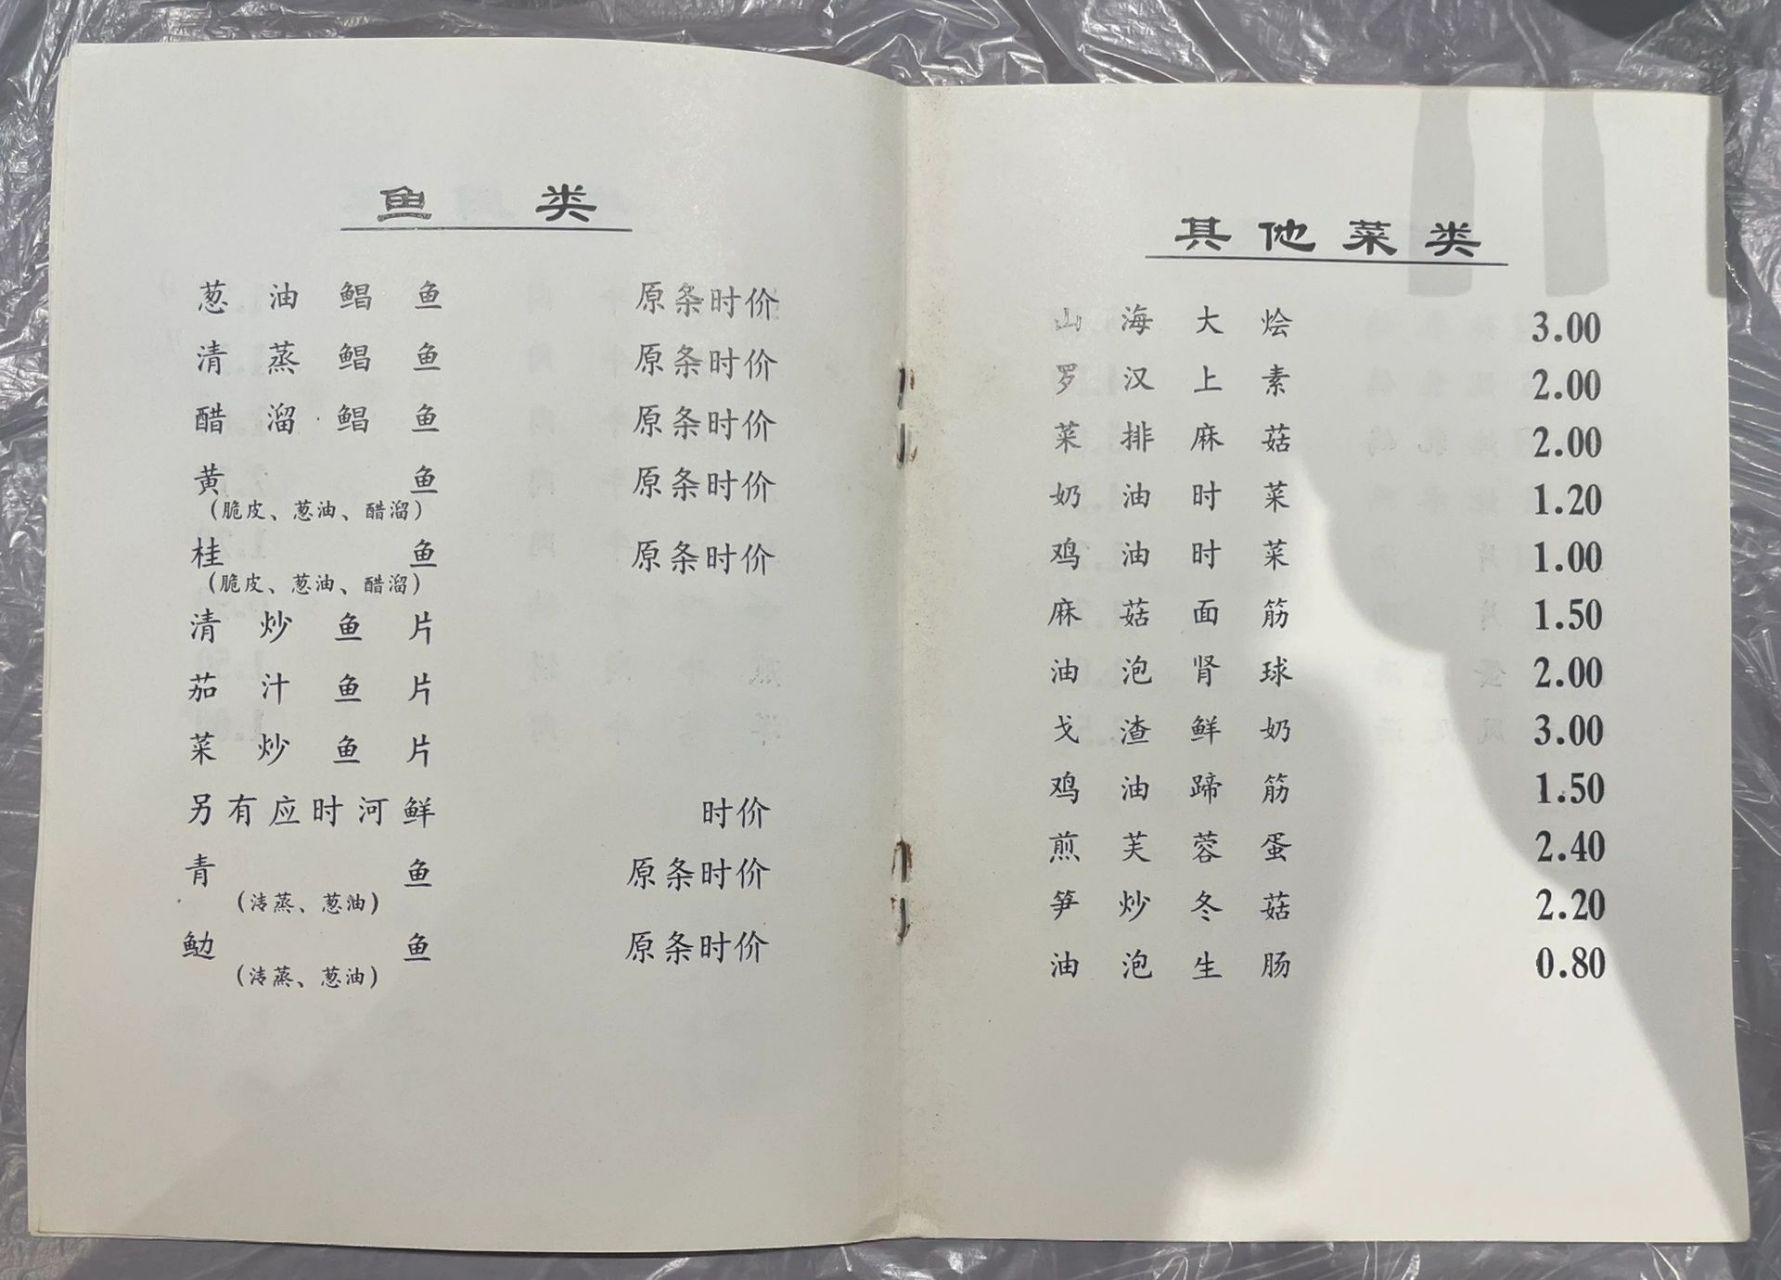 鱼类
葱油鲳鱼 原条时价
清蒸鲳鱼 原条时价
醋溜鲳鱼 原条时价
黄鱼 原条时价
(脆皮、葱油、醋溜)
桂鱼 原条时价
(脆皮、葱油、醋溜)
清炒鱼片
茄汁鱼片
菜炒鱼片
另有应时河鲜 时价
青鱼 原条时价
(清蒸、葱油)
鱼 原条时价
(清蒸、葱油)
其他菜类
山海大烩 3.00
罗汉上素 2.00
菜排麻菇 2.00
奶油时菜 1.20
鸡油时菜 1.00
麻菇面筋 1.50
油泡肾球 2.00
戈渣鲜奶 3.00
鸡油蹄筋 1.50
煎芙蓉蛋 2.40
笋炒冬菇 2.20
油泡生肠 0.80